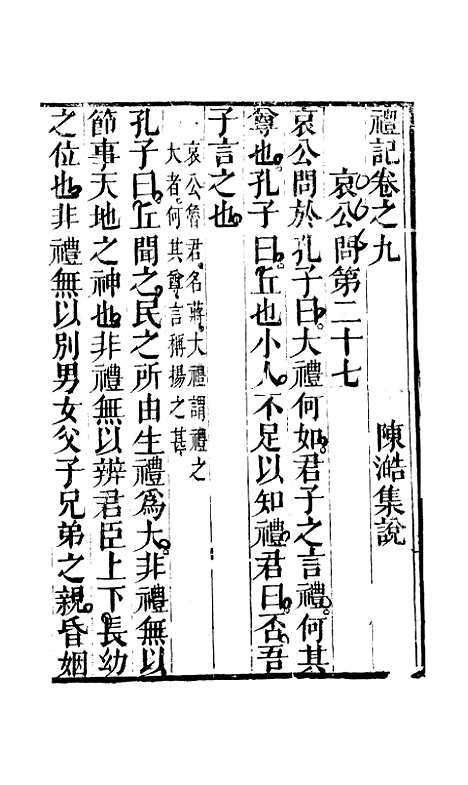 禮記卷之九
陳澔集說
哀公問第二十七
哀公問於孔子曰大禮何如君子之言禮何其
尊也孔子曰丘也小人不足以知禮君曰否吾
子言之也
哀公魯君名蔣大禮謂禮之
大者何其尊言稱揚之甚
孔子曰丘聞之民之所由生禮爲大非禮無以
節事天地之神也非禮無以辨君臣上下長幼
之位也非禮無以別男女父子兄弟之親昏姻